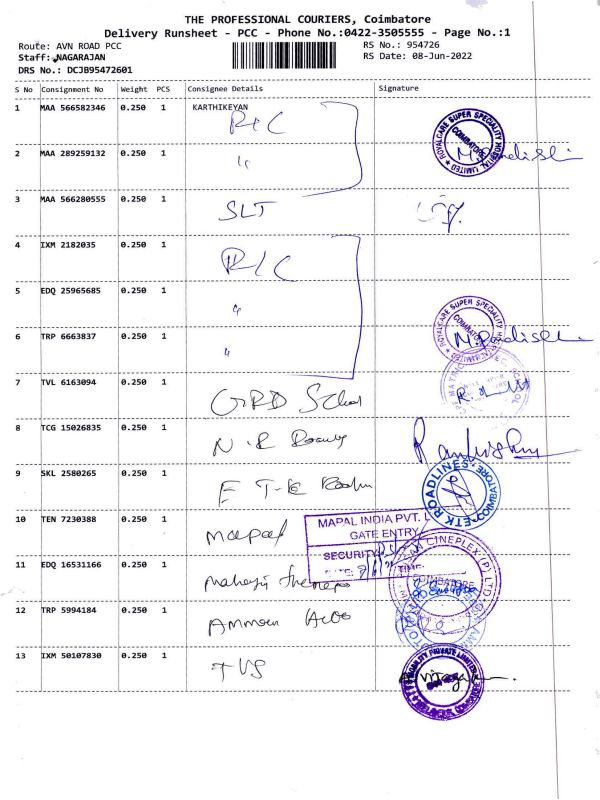 THE PROFESSIONAL COURIERS, Coimbatore
Delivery Runsheet - PCC - Phone No.:0422-3505555 - Page No.:1
Route: AVN ROAD PCC
RS No.: 954726
Staff: NAGARAJAN
RS Date: 08-Jun-2022
DRS No.: DCJB95472601
S No Consignment No Weight PCS Consignee Details Signature
1 MAA 566582346 0.250 1 KARTHIKEYAN
ROYALCARE SUPER SPECIALITY HOSPITAL LIMITED COIMBATORE
2 MAA 289259132 0.250 1 "
3 MAA 566280555 0.250 1 SLT
4 IXM 2182035 0.250 1 R/C
5 EDQ 25965685 0.250 1 "
ROYALCARE SUPER SPECIALITY LIMITED
6 TRP 6663837 0.250 1 "
7 TVL 6163094 0.250 1 GRD School
8 TCG 15026835 0.250 1 N.R
9 SKL 2580265 0.250 1
ETK ROADLINES COIMBATORE
10 TEN 7230388 0.250 1 Mapal
MAPAL INDIA PVT. L
GATE ENTRY
SECURITY
11 EDQ 16531166 0.250 1
CINEPLEX (P) LTD
COIMBATORE
12 TRP 5994184 0.250 1
13 IXM 50107830 0.250 1 TVS